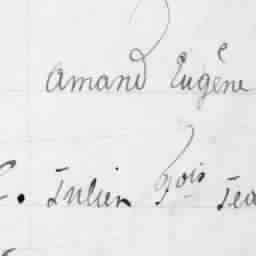 Amand Eugène
Julien fois Jea